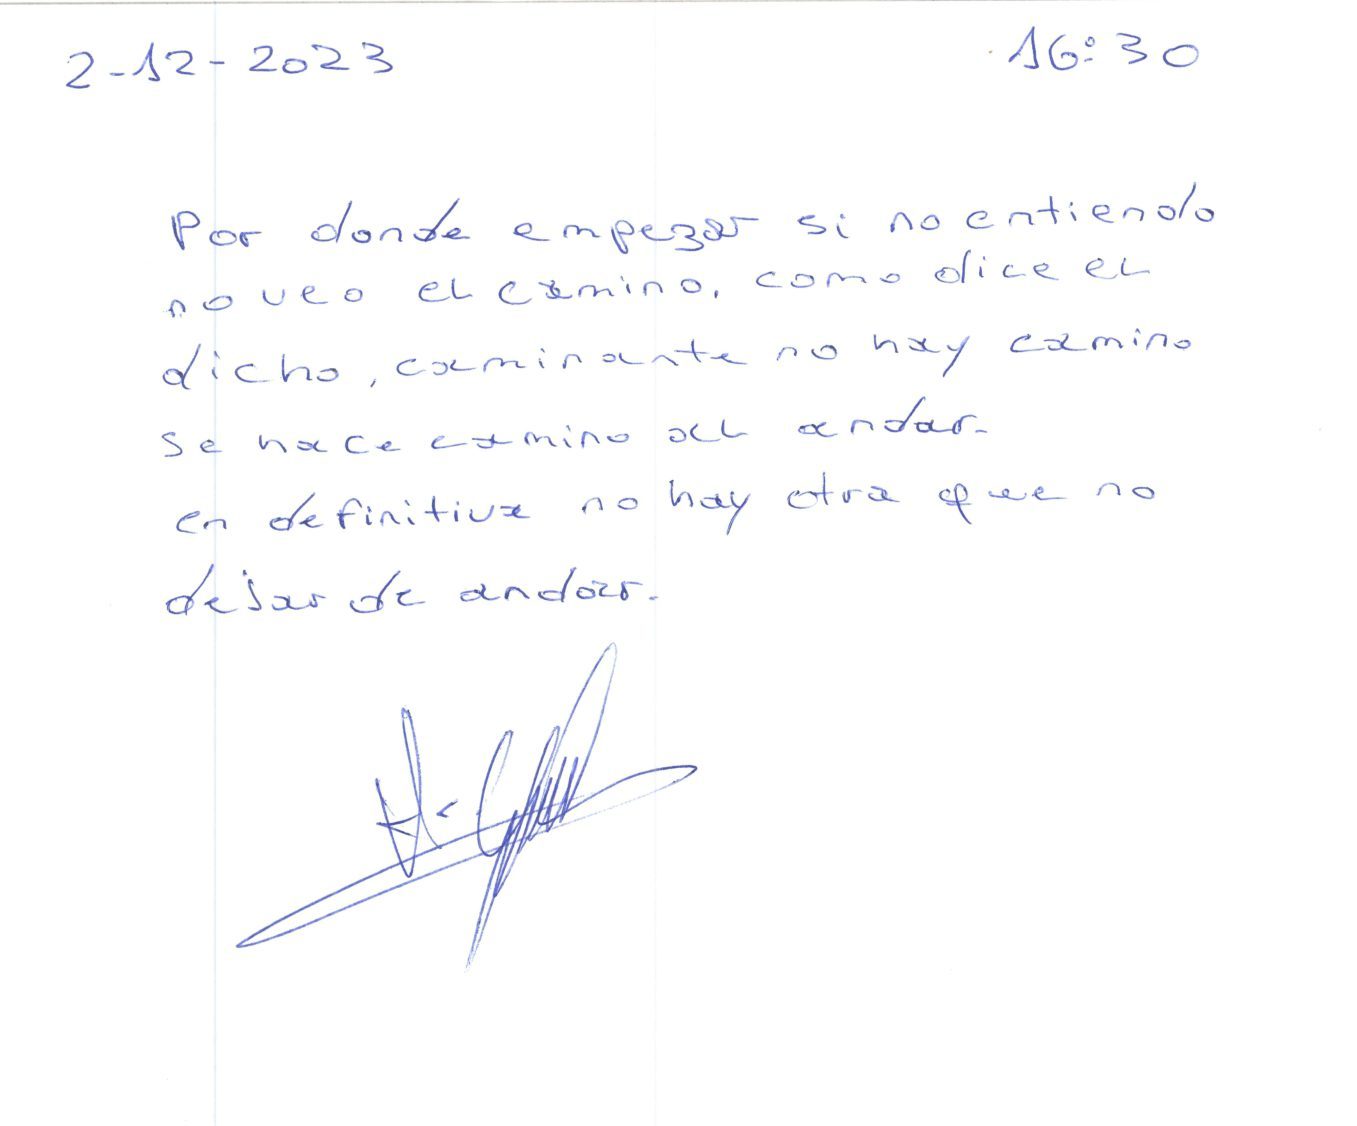 2-12-2023 16:30
Por donde empezar si no entiendo
no veo el camino, como dice el
dicho, caminante no hay camino
se hace camino al andar.
en definitiva no hay otra que no
dejar de andar.